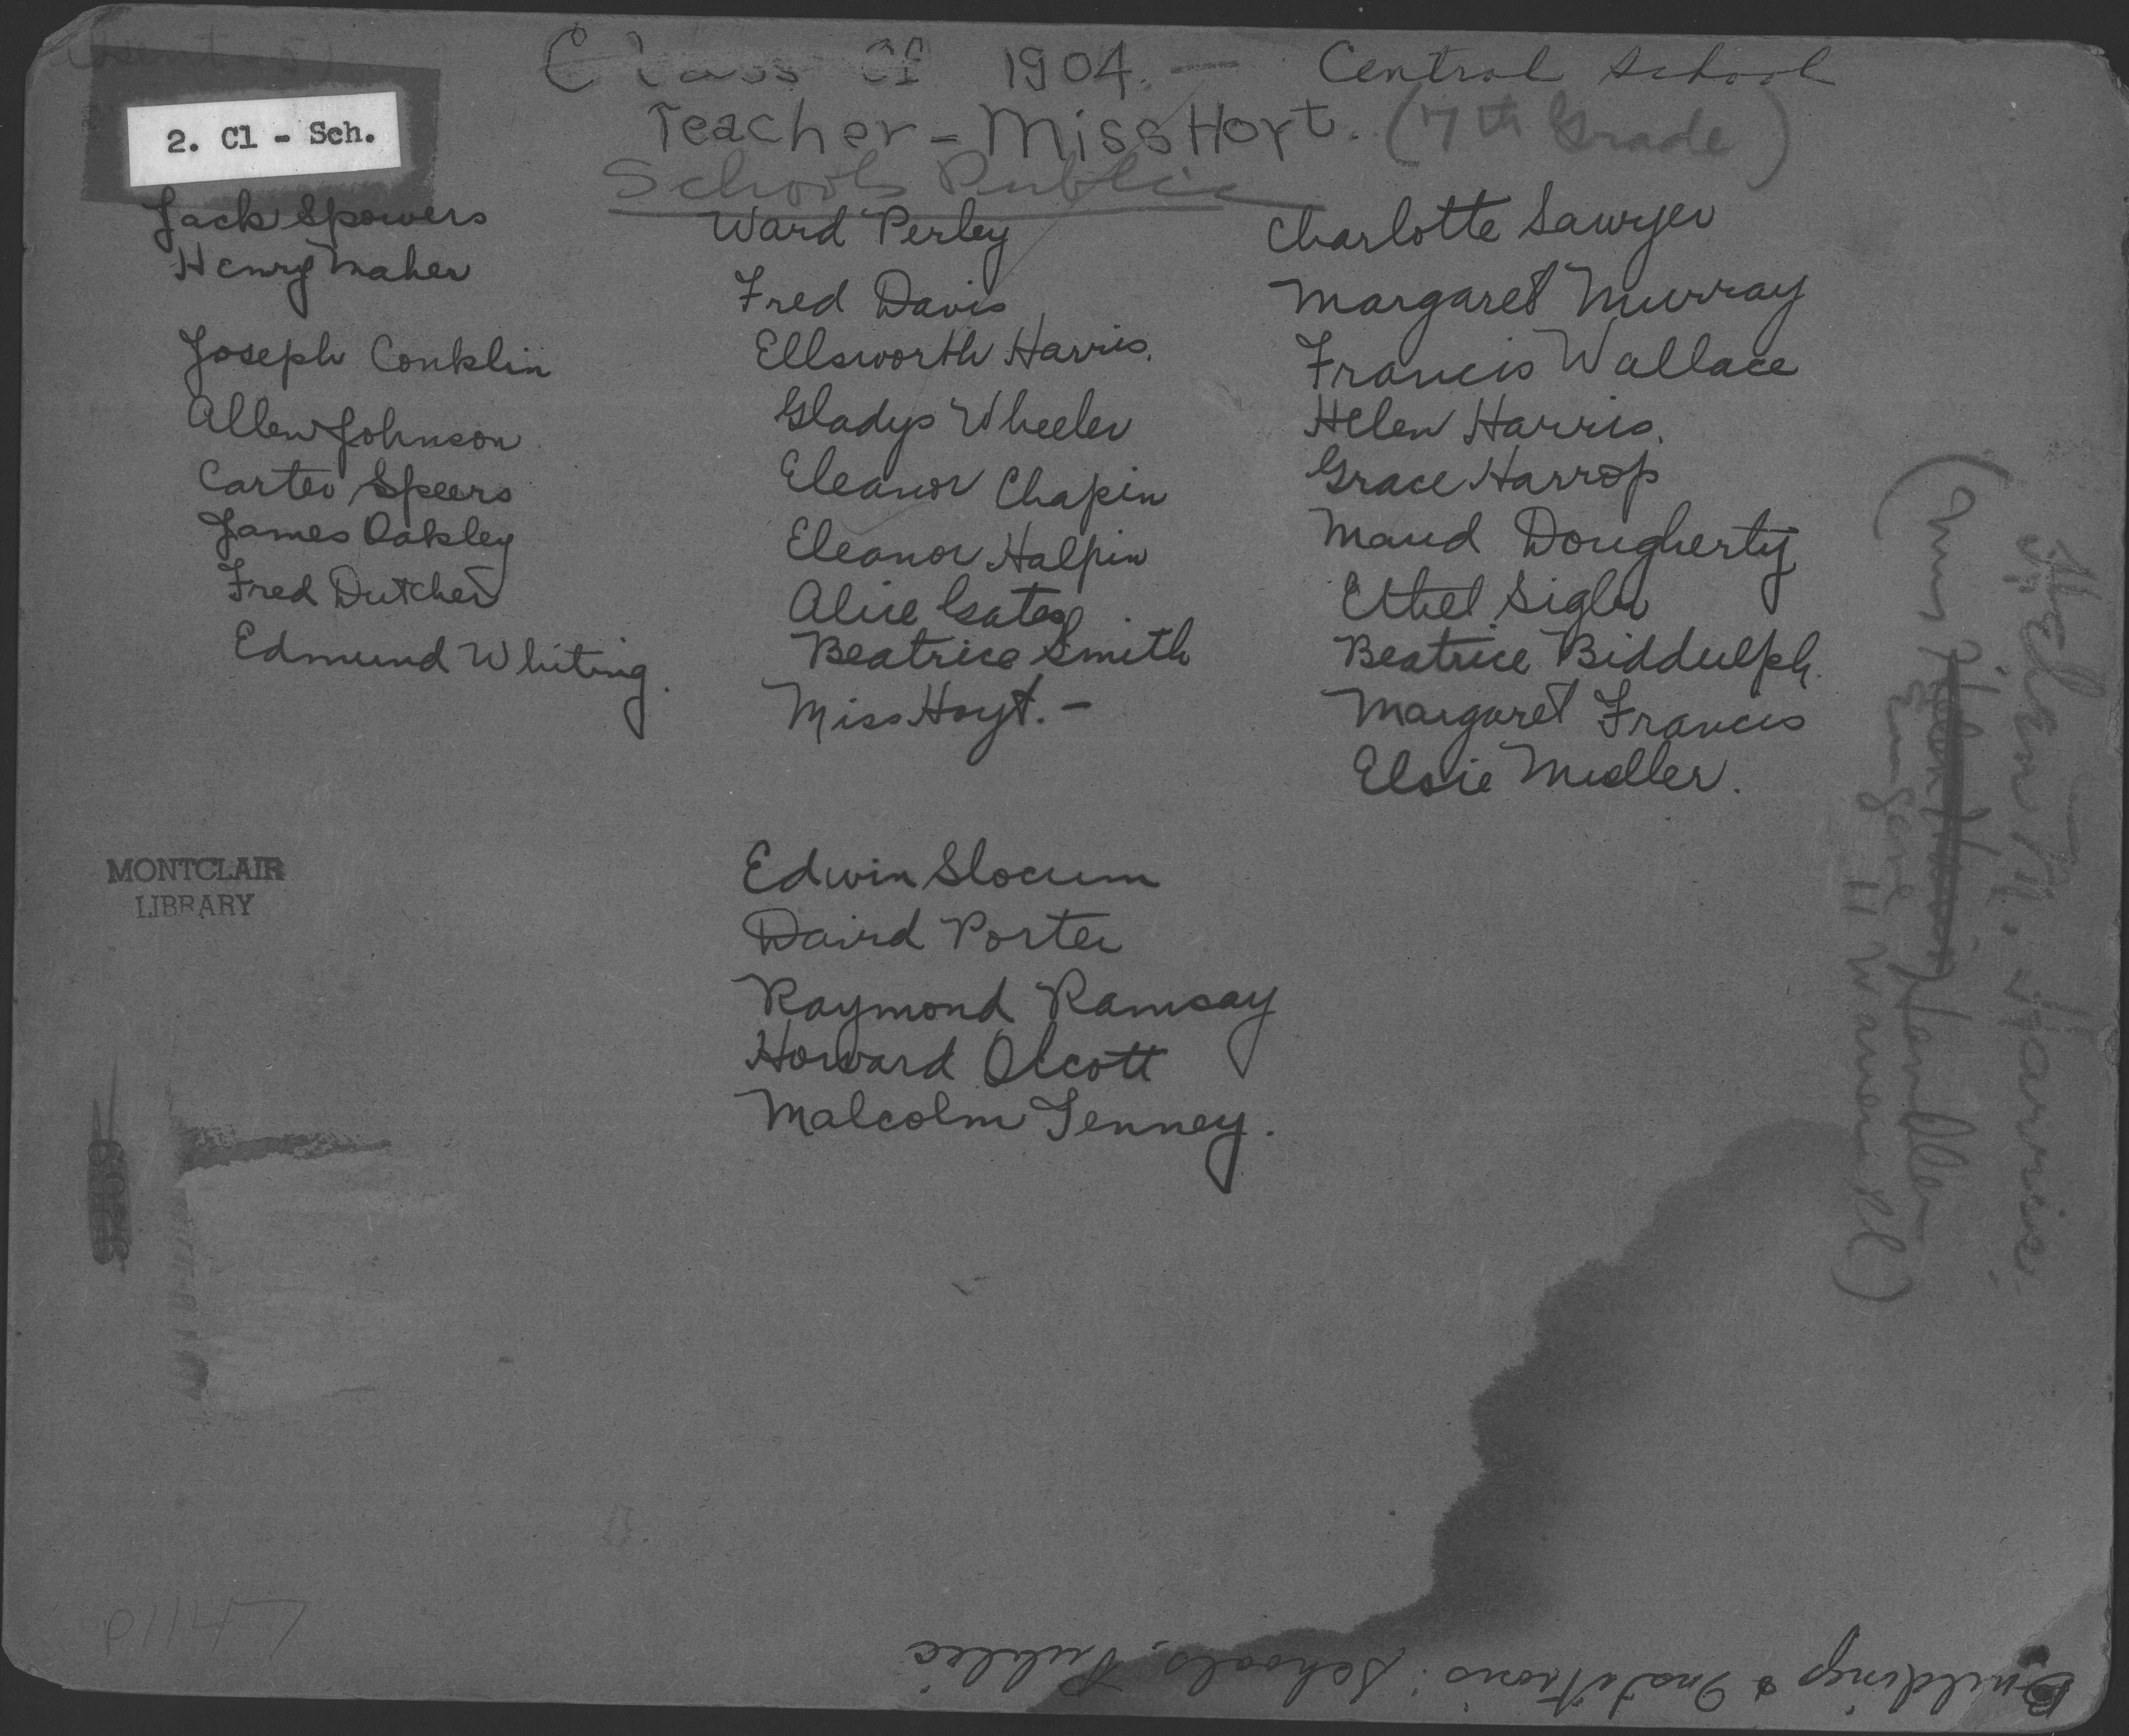 Class of 1904. — Central School
2. Cl - Sch.
Teacher - Miss Hoyt. (7th Grade)
Schools Public
Jack Spowers
Henry Maher
Joseph Conklin
Allen Johnson
Carter Speers
James Oakley
Fred Dutcher
Edmund Whiting.
Ward Perley
Fred Davis
Ellsworth Harris.
Gladys Wheeler
Eleanor Chapin
Eleanor Halpin
Alice Gates
Beatrice Smith
Miss Hoyt. -
Charlotte Sawyer
Margaret Murray
Francis Wallace
Helen Harris.
Grace Harrop
Maud Dougherty
Ethel Sigler
Beatrice Biddulph.
Margaret Francis
Elsie Mueller.
Edwin Slocum
David Porter
Raymond Ramsay
Howard Olcott
Malcolm Tenney.
MONTCLAIR
LIBRARY
Harris.
Eugene
11 Warren Pl)
P1147
Buildings & Institutions: Schools, Public